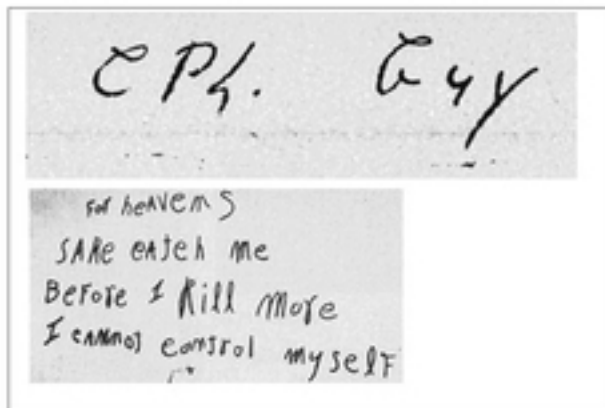 C Ph. Guy
For heAvens
SAKe cAtch me
BeFore I Kill More
I cAnnot control myselF